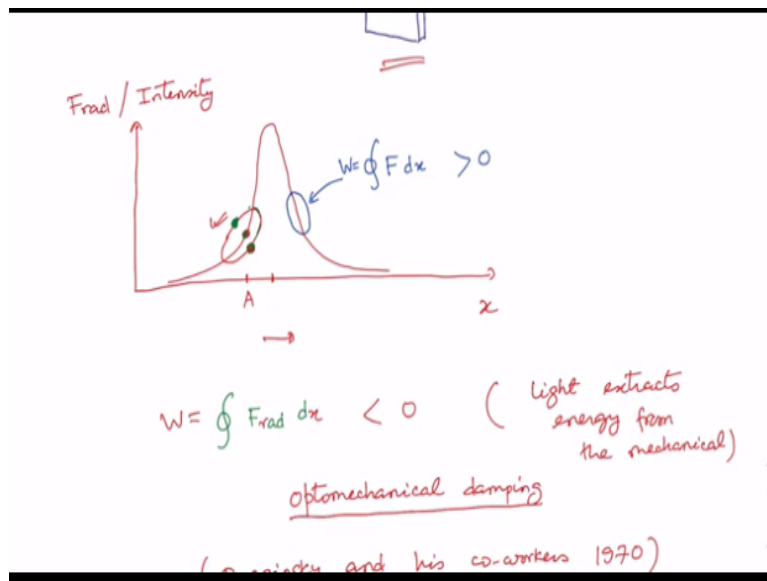 Frad / Intensity
W= ∮ F dx > 0
W
A
x
W= ∮ Frad dx < 0 ( light extracts
energy from
the mechanical)
optomechanical damping
and his co-workers 1970)